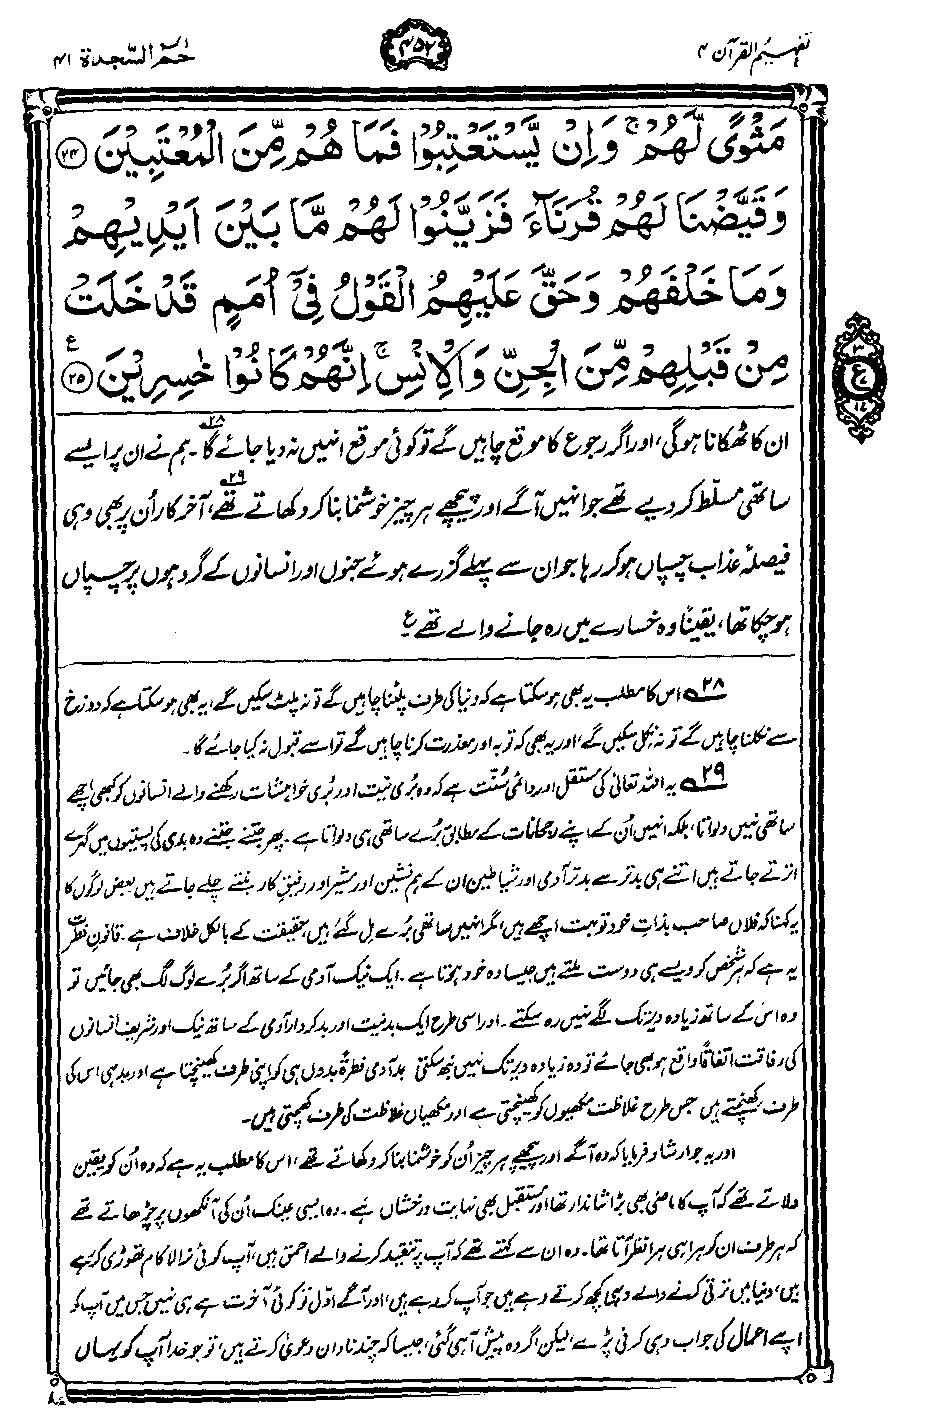 تفہیم القرآن ۴
۴۵۲
حٰمٓ السّجدۃ ۴۱
مَثْوًى لَّهُمْ ۚ وَاِنْ يَّسْتَعْتِبُوْا فَمَا هُمْ مِّنَ الْمُعْتَبِيْنَ ﴿۲۴﴾
وَقَيَّضْنَا لَهُمْ قُرَنَآءَ فَزَيَّنُوْا لَهُمْ مَّا بَيْنَ اَيْدِيْهِمْ
وَمَا خَلْفَهُمْ وَحَقَّ عَلَيْهِمُ الْقَوْلُ فِيْٓ اُمَمٍ قَدْ خَلَتْ
مِنْ قَبْلِهِمْ مِّنَ الْجِنِّ وَالْاِنْسِ ۚ اِنَّهُمْ كَانُوْا خٰسِرِيْنَ ﴿۲۵﴾ ع
ان کا ٹھکانا ہوگی، اور اگر رجوع کا موقع چاہیں گے تو کوئی موقع انہیں نہ دیا جائے گا۲۸۔ ہم نے ان پر ایسے
ساتھی مسلّط کر دیے تھے جو انہیں آگے اور پیچھے ہر چیز خوشنما بنا کر دکھاتے تھے۲۹، آخر کار اُن پر بھی وہی
فیصلۂ عذاب چسپاں ہو کر رہا جو ان سے پہلے گزرے ہوئے جنوں اور انسانوں کے گروہوں پر چسپاں
ہو چکا تھا، یقیناً وہ خسارے میں رہ جانے والے تھے ع
۲۸ اس کا مطلب یہ بھی ہو سکتا ہے کہ دنیا کی طرف پلٹنا چاہیں گے تو نہ پلٹ سکیں گے، یہ بھی ہو سکتا ہے کہ دوزخ
سے نکلنا چاہیں گے تو نہ نکل سکیں گے، اور یہ بھی کہ توبہ اور معذرت کرنا چاہیں گے تو اسے قبول نہ کیا جائے گا۔
۲۹ یہ اللہ تعالیٰ کی مستقل اور دائمی سُنّت ہے کہ وہ بُری نیت اور بُری خواہشات رکھنے والے انسانوں کو کبھی اچھے
ساتھی نہیں دلواتا، بلکہ انہیں اُن کے اپنے رجحانات کے مطابق بُرے ساتھی ہی دلواتا ہے۔ پھر جتنے جتنے وہ بدی کی پستیوں میں گہرے
اترتے جاتے ہیں اتنے ہی بدتر سے بدتر آدمی اور شیاطین ان کے ہم نشین اور مشیر اور رفیقِ کار بنتے چلے جاتے ہیں۔ بعض لوگوں کا
یہ کہنا کہ فلاں صاحب بذاتِ خود تو بہت اچھے ہیں، مگر انہیں ساتھی بُرے مل گئے ہیں، حقیقت کے بالکل خلاف ہے۔ قانونِ فطرت
یہ ہے کہ ہر شخص کو ویسے ہی دوست ملتے ہیں جیسا وہ خود ہوتا ہے۔ ایک نیک آدمی کے ساتھ اگر بُرے لوگ لگ بھی جائیں تو
وہ اس کے ساتھ زیادہ دیر تک لگے نہیں رہ سکتے۔ اور اسی طرح ایک بد نیت اور بد کردار آدمی کے ساتھ نیک اور شریف انسانوں
کی رفاقت اتفاقاً واقع ہو بھی جائے تو وہ زیادہ دیر تک نہیں نبھ سکتی۔ بد آدمی فطرۃً بدوں ہی کو اپنی طرف کھینچتا ہے اور بد ہی اس کی
طرف کھنچتے ہیں جس طرح غلاظت مکھیوں کو کھینچتی ہے اور مکھیاں غلاظت کی طرف کھچتی ہیں۔
اور یہ جو ارشاد فرمایا کہ وہ آگے اور پیچھے ہر چیز اُن کو خوشنما بنا کر دکھاتے تھے، اس کا مطلب یہ ہے کہ وہ اُن کو یقین
دلاتے تھے کہ آپ کا ماضی بھی بڑا شاندار تھا اور مستقبل بھی نہایت درخشاں ہے۔ وہ ایسی عینک اُن کی آنکھوں پر چڑھاتے تھے
کہ ہر طرف ان کو ہرا ہی ہرا نظر آتا تھا۔ وہ ان سے کہتے تھے کہ آپ پر تنقید کرنے والے احمق ہیں، آپ کوئی نرالا کام تھوڑی کر رہے
ہیں، دنیا میں ترقی کرنے والے وہی کچھ کرتے رہے ہیں جو آپ کر رہے ہیں، اور آگے اوّل تو کوئی آخرت ہے ہی نہیں جس میں آپ کو
اپنے اعمال کی جواب دہی کرنی پڑے، لیکن اگر وہ پیش آ ہی گئی، جیسا کہ چند نادان دعویٰ کرتے ہیں، تو جو خدا آپ کو یہاں
۳
ع
۱۷